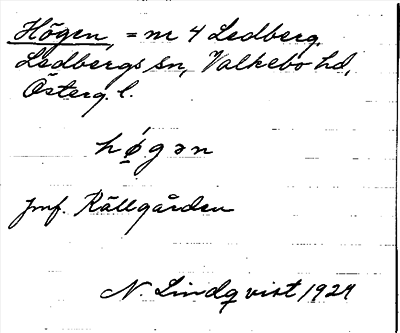 Högen, = nr 4 Ledberg.
Ledbergs sn, Valkebo hd,
Österg. l.
hǿgən
Jmf. Källgården
N. Lindqvist 1927